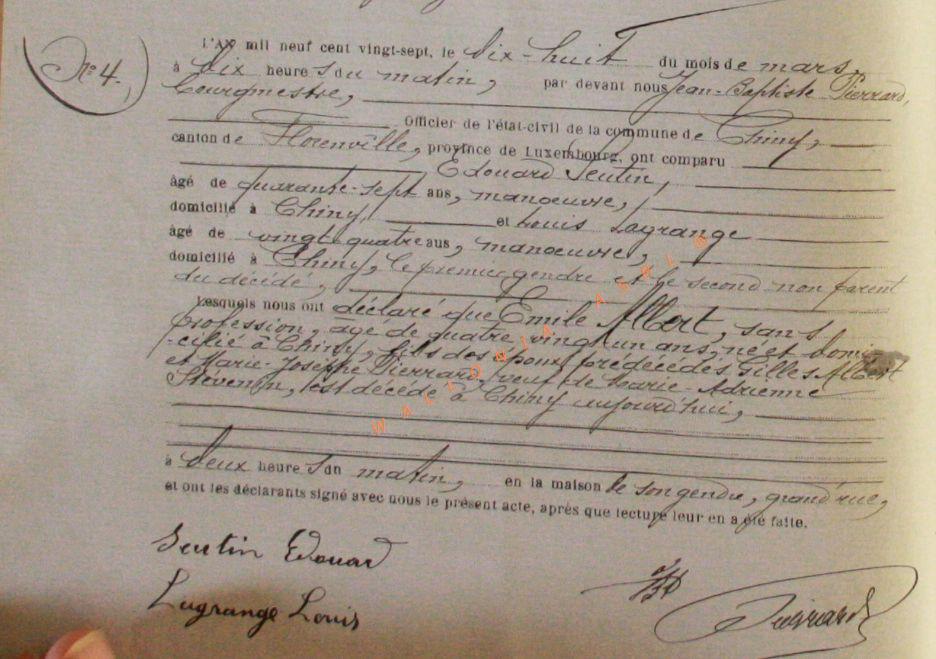 N° 4.
L'AN mil neuf cent vingt-sept, le dix-huit du mois de mars,
à dix heure s du matin, par devant nous Jean-Baptiste Pierrard,
bourgmestre,
Officier de l'état-civil de la commune de Chiny,
canton de Florenville, province de Luxembourg, ont comparu
Edouard Seutin,
âgé de quarante-sept ans, manoeuvre,
domicilié à Chiny, et Louis Lagrange
âgé de vingt quatre ans, manoeuvre,
domicilié à Chiny, le premier gendre et le second non parent
du décédé,
Lesquels nous ont déclaré que Emile Albert, sans
profession, âgé de quatre vingt un ans, né et domi-
cilié à Chiny, fils des époux prédécédés Gilles Albert
et Marie-Joseph Pierrard, veuf de Marie-Adrienne
Stevenin, est décédé à Chiny aujourd'hui,
à deux heure s du matin, en la maison de son gendre, grand'rue,
et ont les déclarants signé avec nous le présent acte, après que lecture leur en a été faite.
Seutin Edouard
Lagrange Louis
Pierrard
WALLONIA ASBL ©